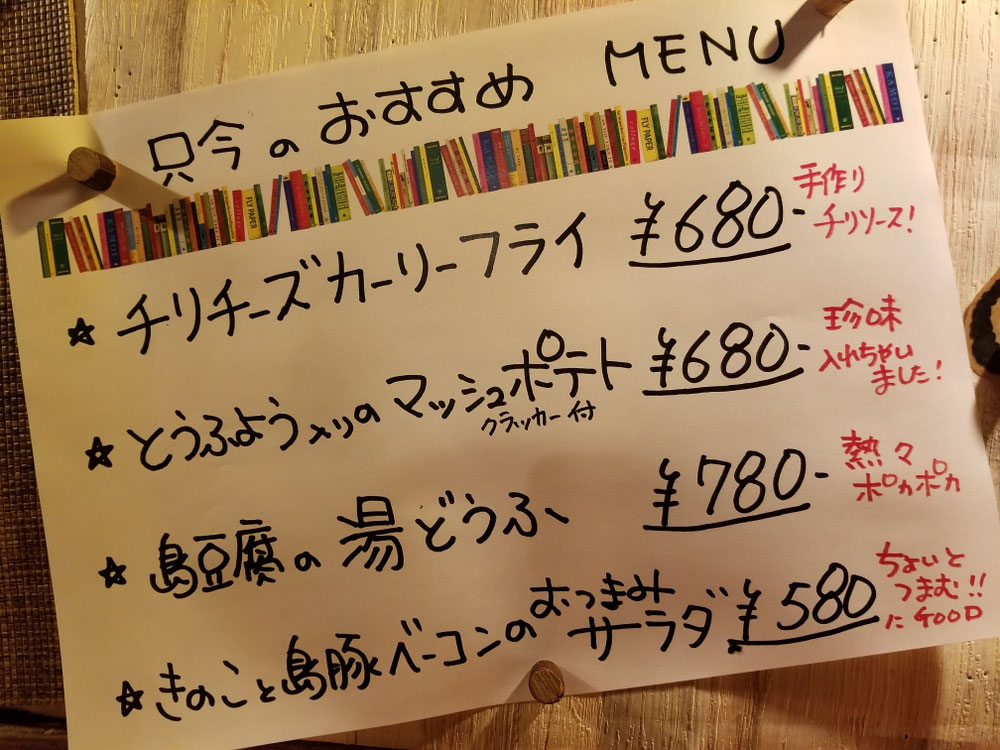 只今のおすすめ MENU
☆チリチーズカーリーフライ ¥680-
手作り
チリソース!
☆とうふよう入りのマッシュポテト ¥680-
クラッカー付
珍味
入れちゃい
ました!
☆島豆腐の湯どうふ ¥780-
熱々
ポカポカ
☆きのこと島豚ベーコンのおつまみサラダ ¥580
ちょいと
つまむ!!
にGOOD
FLY PAPER
FLY PAPER